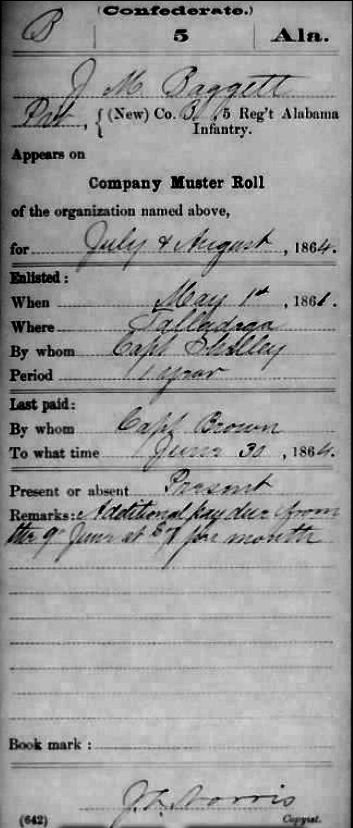 (Confederate.)
B 5 Ala.
J M Baggett
Pvt, { (New) Co. B, 5 Reg't Alabama Infantry.
Appears on
Company Muster Roll
of the organization named above,
for July & August, 1864.
Enlisted:
When May 1st, 1861.
Where Talladega
By whom Capt Shelley
Period 1 year
Last paid:
By whom Capt Brown
To what time June 30, 1864.
Present or absent Present
Remarks: Additional pay due from
the 9" June at $7 per month
Book mark:
J. L. Norris
(642) Copyist.